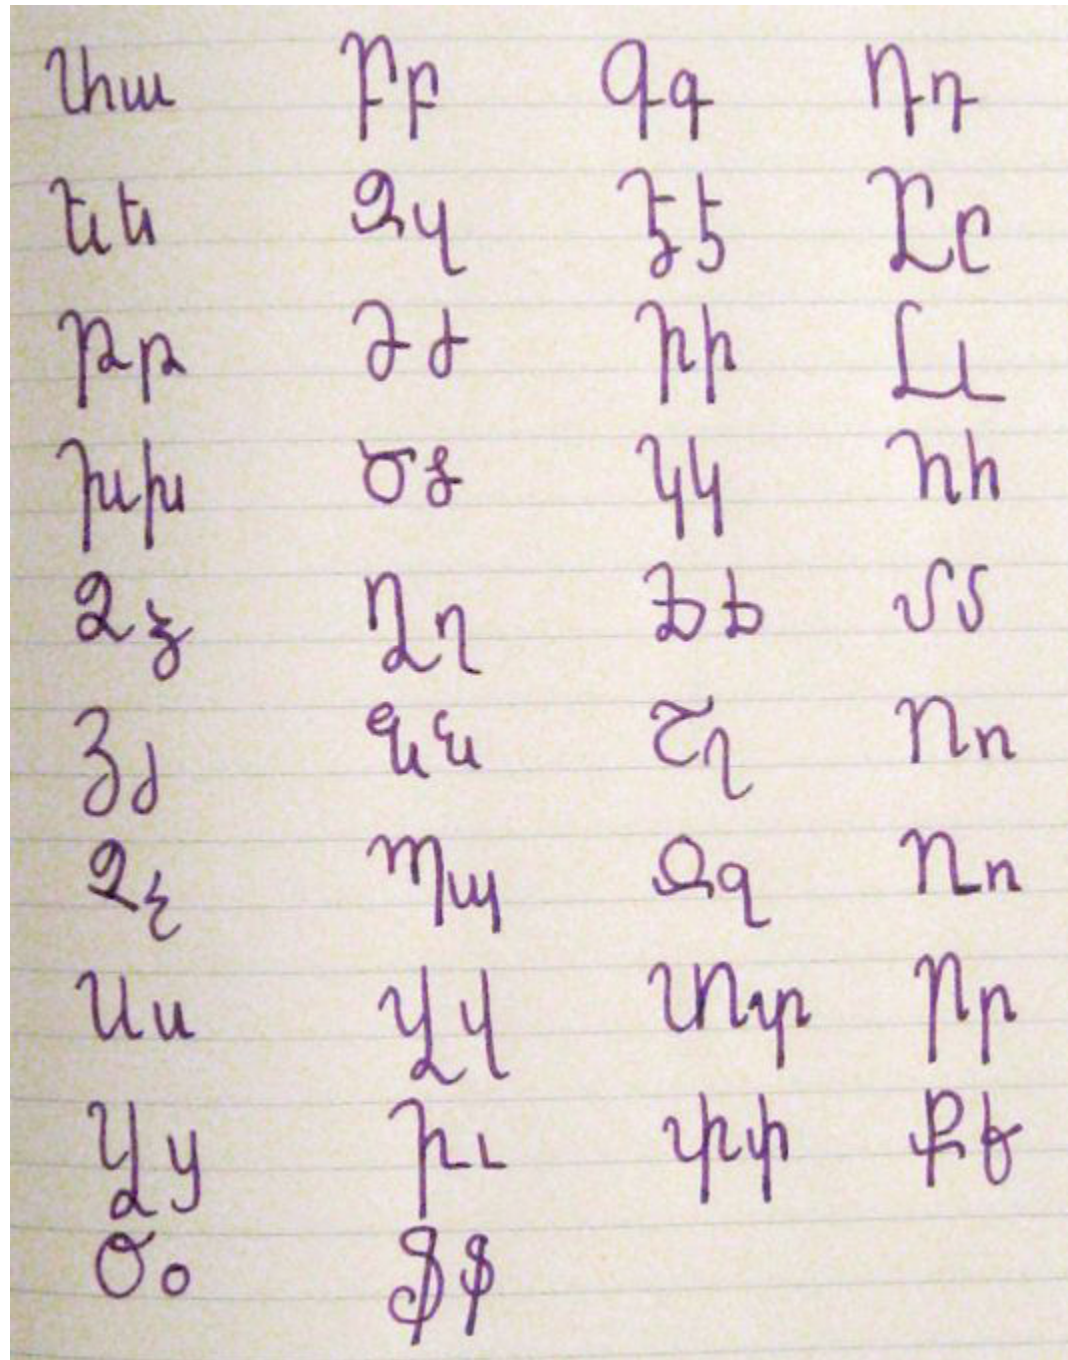 Աա Բբ Գգ Դդ
Եե Զզ Էէ Ըը
Թթ Ժժ Իի Լլ
Խխ Ծծ Կկ Հհ
Ձձ Ղղ Ճճ Մմ
Յյ Նն Շշ Ոո
Չչ Պպ Ջջ Ռռ
Սս Վվ Տտ Րր
Ցց Ււ Փփ Քք
Օօ Ֆֆ